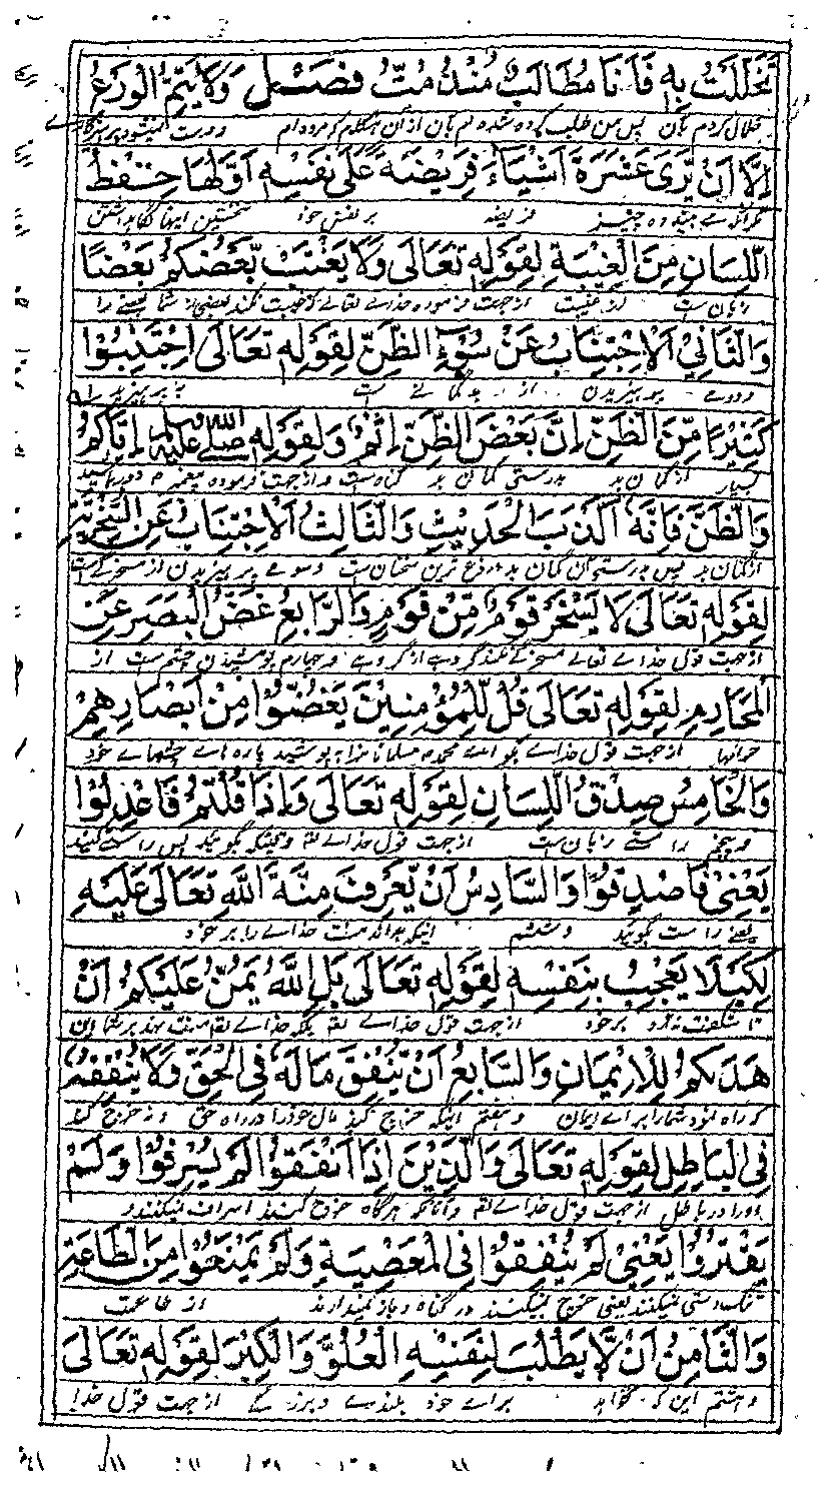 تَخَلَّلْتُ بِهٖ فَاَنَا مُطَالَبٌ مُنْذُ مُتُّ فصــل وَلَا يَتِمُّ الْوَرَعُ
خلال کردم بآن پس من طلب کرده شده ام بآن از آن هنگام که مرده ام ودرست نمیشود پرهیزگاری
اِلَّا اَنْ يَّرٰى عَشَرَةَ اَشْيَاءَ فَرِيْضَةً عَلٰى نَفْسِهٖ اَوَّلُهَا حِفْظُ
مگر آنکه بیند ده چیز فریضه بر نفس خود نخستین اینها نگاهداشتن
اللِّسَانِ مِنَ الْغِيْبَةِ لِقَوْلِهٖ تَعَالٰى وَلَا يَغْتَبْ بَّعْضُكُمْ بَعْضًا
زبان ست از غیبت از جهت فرموده خدای تعالی که غیبت نکند بعضی از شما بعضے را
وَالثَّانِيْ اَلْاِجْتِنَابُ عَنْ سُوْٓءِ الظَّنِّ لِقَوْلِهٖ تَعَالٰى اِجْتَنِبُوْا
ودوم پرهیزیدن از بد گمانے ست
كَثِيْرًا مِّنَ الظَّنِّ اِنَّ بَعْضَ الظَّنِّ اِثْمٌ وَلِقَوْلِهٖ صلى الله عليه وسلم اِيَّاكُمْ
بسیار از گمان بد بدرستی گمان بد گناه ست و از جهت فرموده پیغمبر
وَالظَّنَّ فَاِنَّهٗ اَكْذَبُ الْحَدِيْثِ وَالثَّالِثُ اَلْاِجْتِنَابُ عَنِ السُّخْرِيَّةِ
از گمان بد پس بدرستی آن گمان بد دروغ ترین سخنان ست وسوم پرهیزیدن از مسخرگی ست
لِقَوْلِهٖ تَعَالٰى لَا يَسْخَرْ قَوْمٌ مِّنْ قَوْمٍ وَالرَّابِعُ غَضُّ الْبَصَرِ عَنِ
از جهت قول خدای تعالی مسخرگی نکند گروهے از گروهے وچهارم پوشیدن چشم ست از
الْمَحَارِمِ لِقَوْلِهٖ تَعَالٰى قُلْ لِّلْمُؤْمِنِيْنَ يَغُضُّوْا مِنْ اَبْصَارِهِمْ
حرامها از جهت قول خدای بگو اے محمد مسلمانانرا بپوشید پاره اے چشمهاے خود
وَالْخَامِسُ صِدْقُ اللِّسَانِ لِقَوْلِهٖ تَعَالٰى وَاِذَا قُلْتُمْ فَاعْدِلُوْا
وپنجم راستے زبان ست از جهت قول خدای تعم وهنگامیکه بگوئید پس راستی کنید
يَعْنِيْ فَاصْدِقُوْا وَالسَّادِسُ اَنْ يَّعْرِفَ مِنَّةَ اللّٰهِ تَعَالٰى عَلَيْهِ
یعنے راست بگوئید وششم اینکه بداند منت خدای را بر خود
لِكَيْلَا يَعْجُبَ بِنَفْسِهٖ لِقَوْلِهٖ تَعَالٰى بَلِ اللّٰهُ يَمُنُّ عَلَيْكُمْ اَنْ
تا شگفت نه آرد بر خود از جهت قول خدای تعم بلکه خدای تعم منت نهد بر شما این
هَدٰىكُمْ لِلْاِيْمَانِ وَالسَّابِعُ اَنْ يُّنْفِقَ مَالَهٗ فِي الْحَقِّ وَلَا يُنْفِقَهٗ
که راه نمود شمارا براے ایمان وهفتم اینکه خرج کند مال خود را در راه حق ونه خرج کند
فِي الْبَاطِلِ لِقَوْلِهٖ تَعَالٰى وَالَّذِيْنَ اِذَا اَنْفَقُوْا لَمْ يُسْرِفُوْا وَلَمْ
اورا در باطل از جهت قول خدای تعم وآنانکه هرگاه خرج کنند اسراف نیکنند و
يَقْتُرُوْا يَعْنِيْ لَمْ يُنْفِقُوْا فِي الْمَعْصِيَةِ وَلَمْ يَمْنَعُوْا مِنَ الطَّاعَةِ
تنگدستی نیکنند یعنی خرج نیکنند در گناه وباز نمیدارند از طاعت
وَالثَّامِنُ اَنْ لَّا يَطْلُبَ لِنَفْسِهِ الْعُلُوَّ وَالْكِبْرَ لِقَوْلِهٖ تَعَالٰى
وهشتم این که نخواهد براے خود بلندے وبزرگے از جهت قول خدا